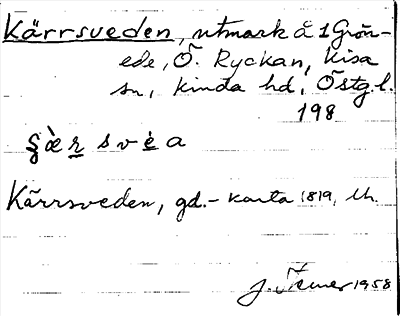 Kärrsveden, utmark å 1 Grön-
ede, Ö. Ryckan, Kisa
sn, Kinda hd, Östg. l.
198
Kärrsveden, gd. - karta 1819, lh.
J. 1958